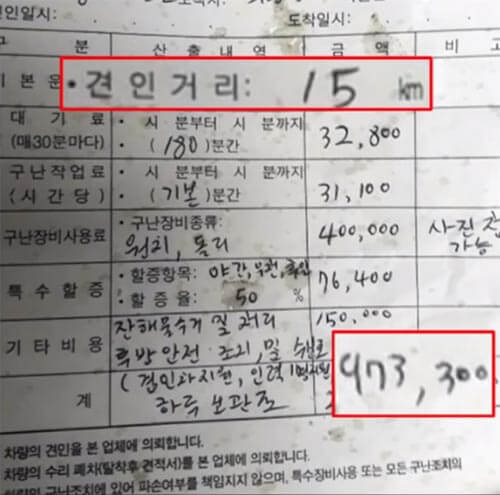 인일시:
도착일시:
구 분 산 출 내 역 금 액 비
기본운
• 견인거리: 15 km
대 기 료
(매30분마다)
• 시 분부터 시 분까지
• (180)분간
32,800
구난작업료
(시 간 당)
• 시 분부터 시 분까지
• (기본)분간
31,100
구난장비사용료
• 구난장비종류:
윈치, 돌리
400,000
사진
가능
특 수 할 증
• 할증항목: 야간, 우천,
• 할 증 율: 50 %
76,400
기 타 비 용
잔해물수거 및 처리
후방안전 조치, 및
150,000
계
(견인과지원, 인력
하루 보관료
973,300
차량의 견인을 본 업체에 의뢰합니다.
차량의 수리 폐차(탈착후 견적서)를 본 업체에 의뢰합니다.
차량의 구난조치에 있어 파손여부를 책임지지 않으며, 특수장비사용 또는 모든 구난조치의